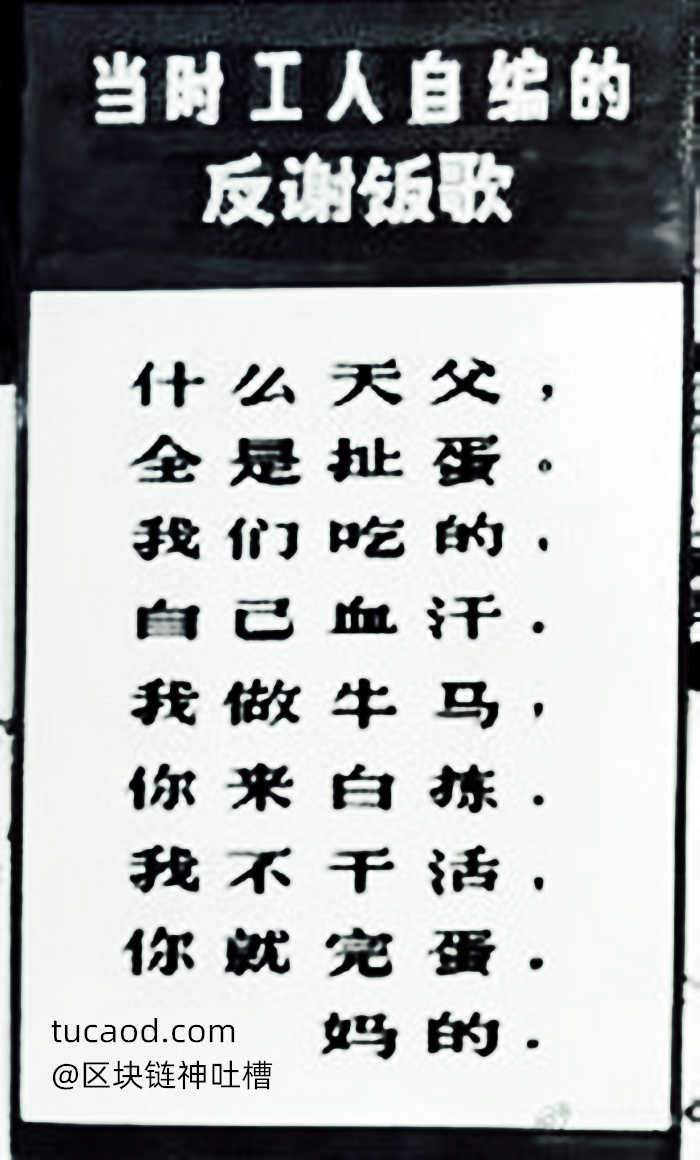 当时工人自编的
反谢饭歌
什么天父，
全是扯蛋。
我们吃的，
自己血汗．
我做牛马，
你来白拣．
我不干活，
你就完蛋．
妈的．
tucaod.com
@区块链神吐槽